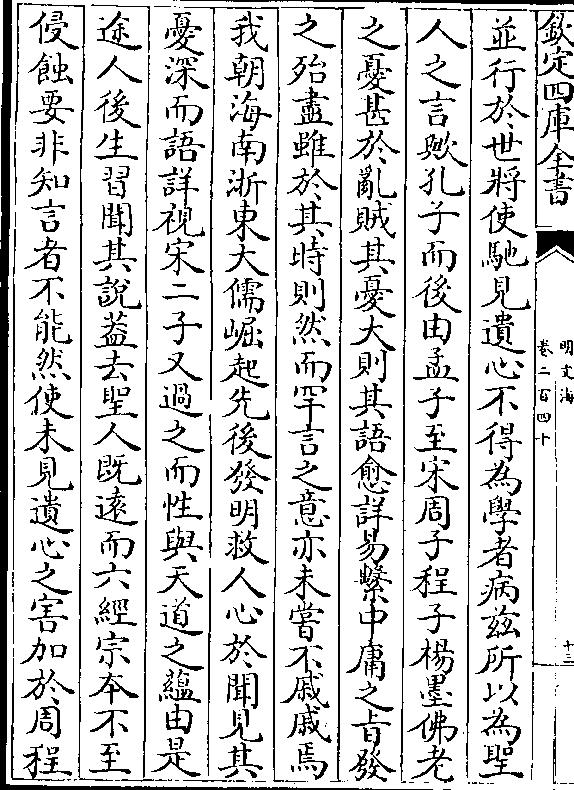 欽定四庫全書
明文海
卷二百四十
十三
並行於世將使馳見遺心不得為學者病兹所以為聖
人之言歟孔子而後由孟子至宋周子程子楊墨佛老
之憂甚於亂賊其憂大則其語愈詳易繫中庸之旨發
之殆盡雖於其時則然而罕言之意亦未嘗不戚戚焉
我朝海南浙東大儒崛起先後發明救人心於聞見其
憂深而語詳視宋二子又過之而性與天道之蘊由是
途人後生習聞其說葢去聖人既遠而六經宗本不至
侵蝕要非知言者不能然使未見遺心之害加於周程